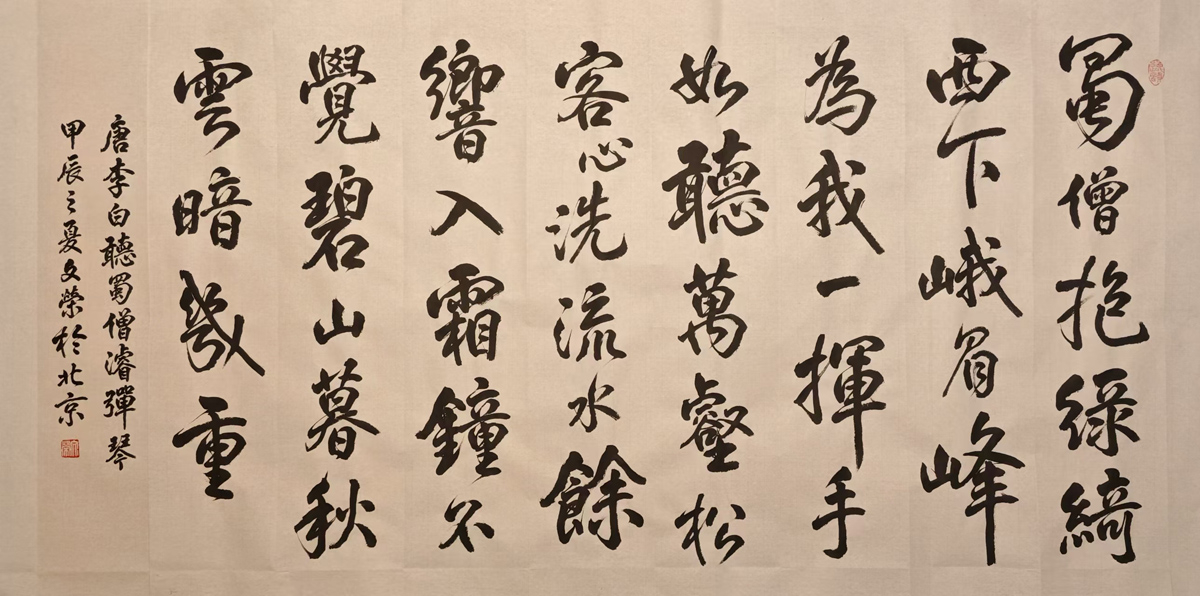 蜀僧抱綠綺
西下峨眉峰
為我一揮手
如聽萬壑松
客心洗流水餘
響入霜鐘不
覺碧山暮秋
雲暗幾重
唐李白聽蜀僧濬彈琴
甲辰之夏文榮於北京